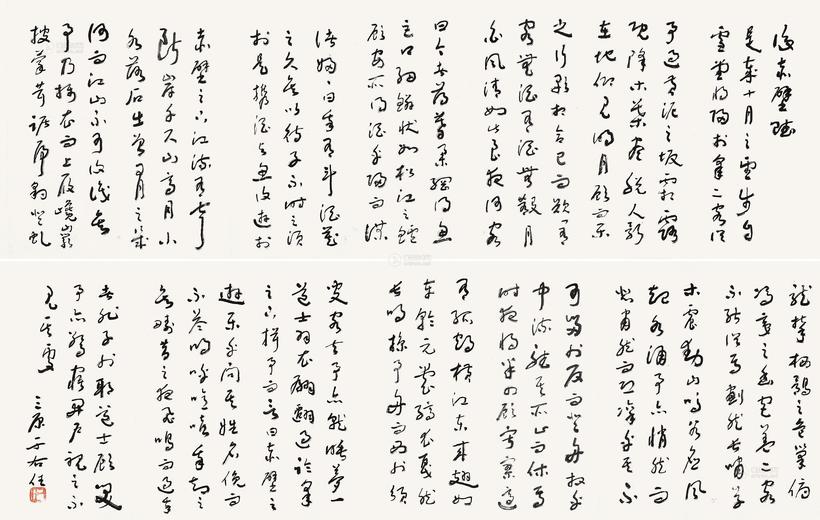 後赤壁賦
是歲十月之望步自
雪堂將歸於臯二客從
予過黃泥之坂霜露
既降木葉盡脫人影
在地仰見明月顧而樂
之行歌相答已而歎有
客無酒有酒無殽月
白風清如此良夜何客
曰今者薄暮舉網得魚
巨口細鱗狀如松江之鱸
顧安所得酒乎歸而謀
諸婦曰我有斗酒藏
之久矣以待子不時之須
於是攜酒與魚復遊於
赤壁之下江流有聲
斷岸千尺山高月小
水落石出曾日月之幾
何而江山不可復識矣
予乃攝衣而上履巉巖
披蒙茸踞虎豹登虬
龍攀栖鶻之危巢俯
馮夷之幽宮蓋二客
不能從焉劃然長嘯草
木震動山鳴谷應風
起水涌予亦悄然而
悲肅然而恐凜乎其不
可留也反而登舟放乎
中流聽其所止而休焉
時夜將半四顧寂寥適
有孤鶴橫江東來翅如
車輪元裳縞衣戛然
長鳴掠予舟而西也須
臾客去予亦就睡夢一
道士羽衣翩躚過臨臯
之下揖予而言曰赤壁之
遊樂乎問其姓名俛而
不答嗚呼噫嘻我知之
矣疇昔之夜飛鳴而過我
者非子也耶道士顧笑
予亦驚寤開戶視之不
見其處
三原于右任